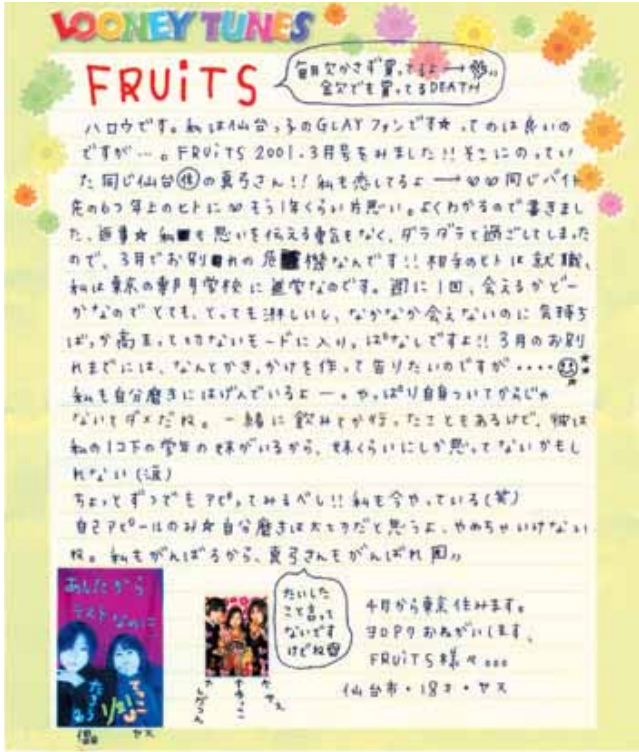 LOONEY TUNES
FRUiTS
毎月欠かさず買ってるよ
金欠でも買ってるDEATH
ハロウです。私は仙台っ子のGLAYファンです★ってのは良いの
ですが…。FRUiTS 2001.3月号をみました!!そこにのってい
た同じ仙台住の真弓さん!!私も恋してるよ→♡♡同じバイト
先の6つ年上のヒトに♡もう1年くらい片思い。よくわかるので書きまし
た、返事★私も思いを伝える勇気もなく、ダラダラと過ごしてしまった
ので、3月でお別れの危機なんです!!相手のヒトは就職、
私は東京の専門学校に進学なのです。週に1回、会えるかどー
かなのでとても、とっても淋しいし、なかなか会えないのに気持ち
ばっか高まって切ないモードに入りっぱなしですよ!!3月のお別
れまでには、なんとかきっかけを作って告りたいのですが‥‥
私も自分磨きにはげんでいるよー。やっぱり自身ついてからじゃ
ないとダメだね。一緒に飲みとか行ったこともあるけど、彼は
私の1コ下の学年の妹がいるから、妹くらいにしか思ってないかもし
れない(涙)
ちょっとずつでもアピってみるべし!!私も今やっている(笑)
自己アピールのみ★自分磨きは大切だと思うよ、やめちゃいけない
ね。私もがんばるから、真弓さんもがんばれ
たいした
こと言って
ないです
けどね
4月から東京住みます。
ヨロシクおねがいします、
FRUiTS様々。。。
仙台市・18才・ヤス
あしたから
テストなのに
ヤス